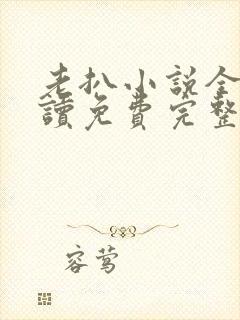 老扒小说全
讀免費完整
容莺